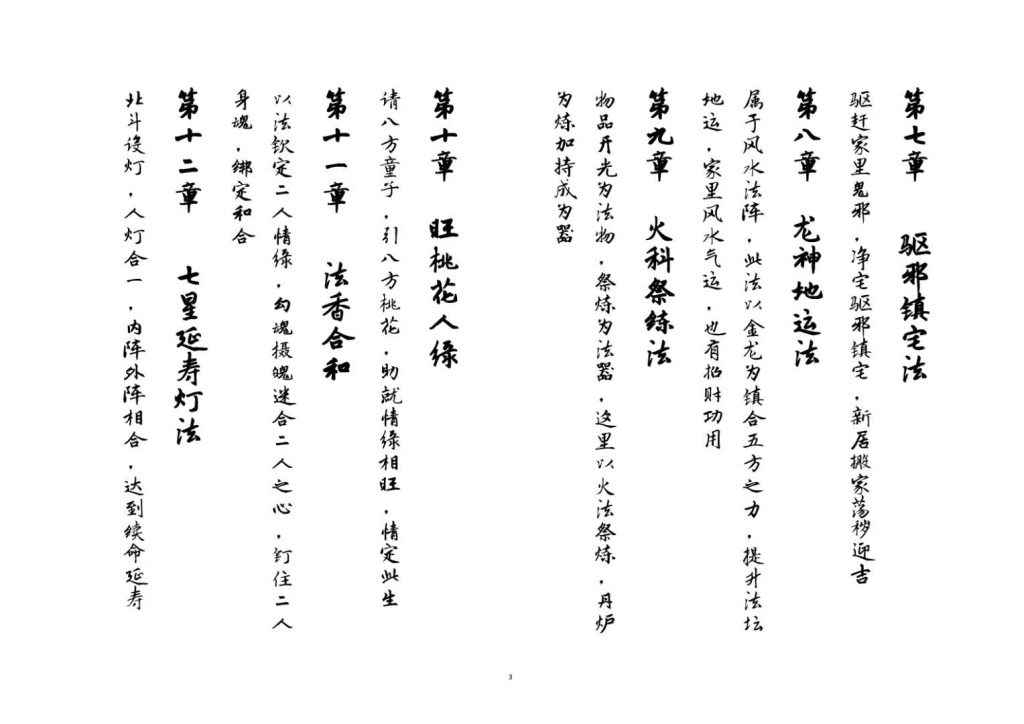 第七章 驱邪镇宅法
驱赶家里鬼邪，净宅驱邪镇宅，新居搬家荡秽迎吉
第八章 龙神地运法
属于风水法阵，此法以金龙为镇合五方之力，提升法坛
地运，家里风水气运，也有招财功用
第九章 火科祭练法
物品开光为法物，祭炼为法器，这里以火法祭炼，丹炉
为炼加持成为器
第十章 旺桃花人缘
请八方童子，引八方桃花，助就情缘相旺，情定此生
第十一章 法香合和
以法钦定二人情缘，勾魂摄魄迷合二人之心，钉住二人
身魂，绑定和合
第十二章 七星延寿灯法
北斗设灯，人灯合一，内阵外阵相合，达到续命延寿
3